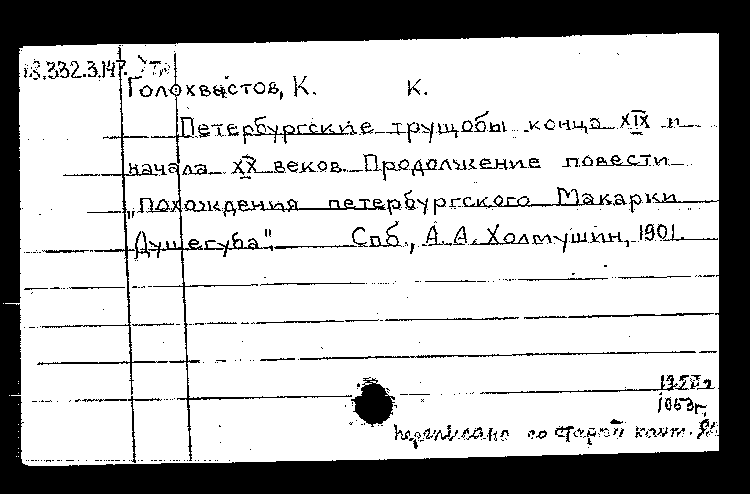 18.332.3.147.
Голохвастов, К. К.
Петербургские трущобы конца XIX и
начала XX веков. Продолжение повести
"Похождения петербургского Макарки
Душегуба". Спб., А. А. Холмушин, 1901.
1953г.
переписано со старой карт.